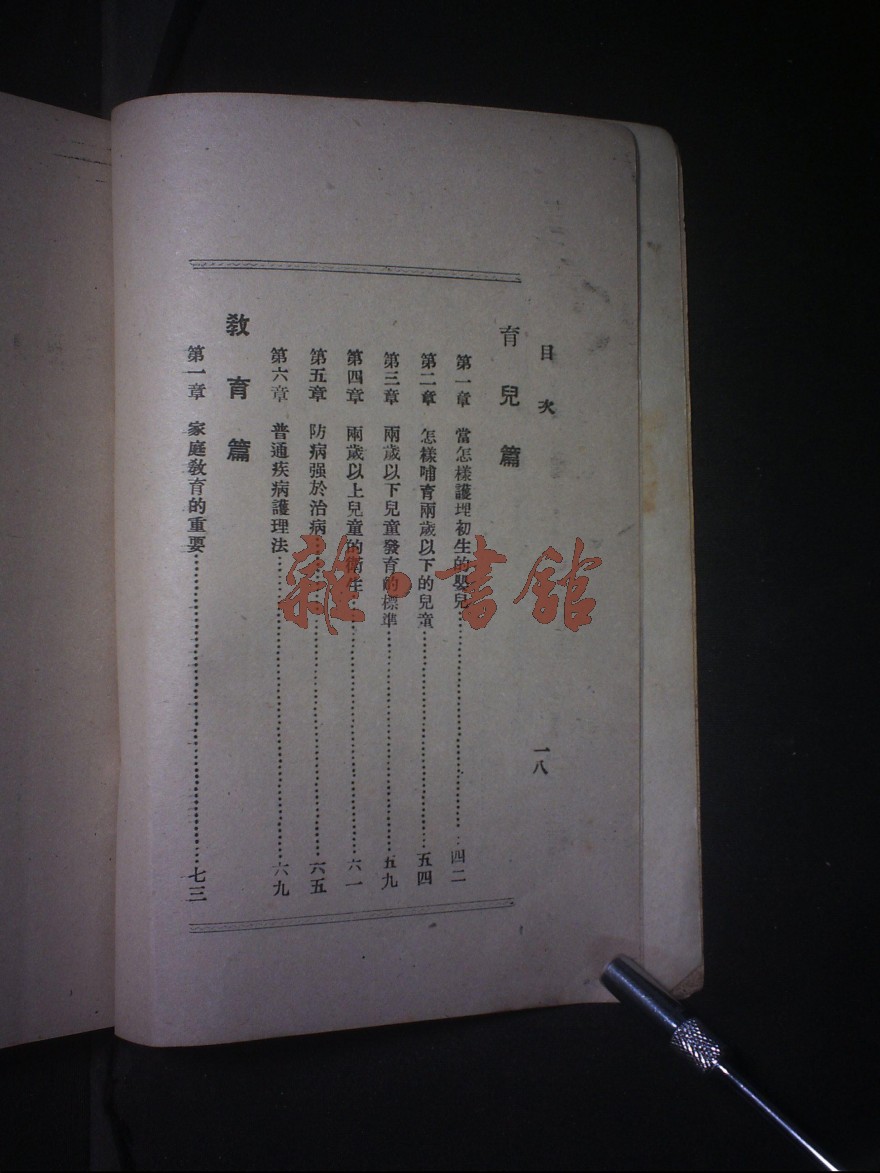 目次
一八
育兒篇
第一章 當怎樣護理初生的嬰兒 四二
第二章 怎樣哺育兩歲以下的兒童 五四
第三章 兩歲以下兒童發育的標準 五九
第四章 兩歲以上兒童的衛生 六一
第五章 防病强於治病 六五
第六章 普通疾病護理法 六九
教育篇
第一章 家庭敎育的重要 七三
雜·書館